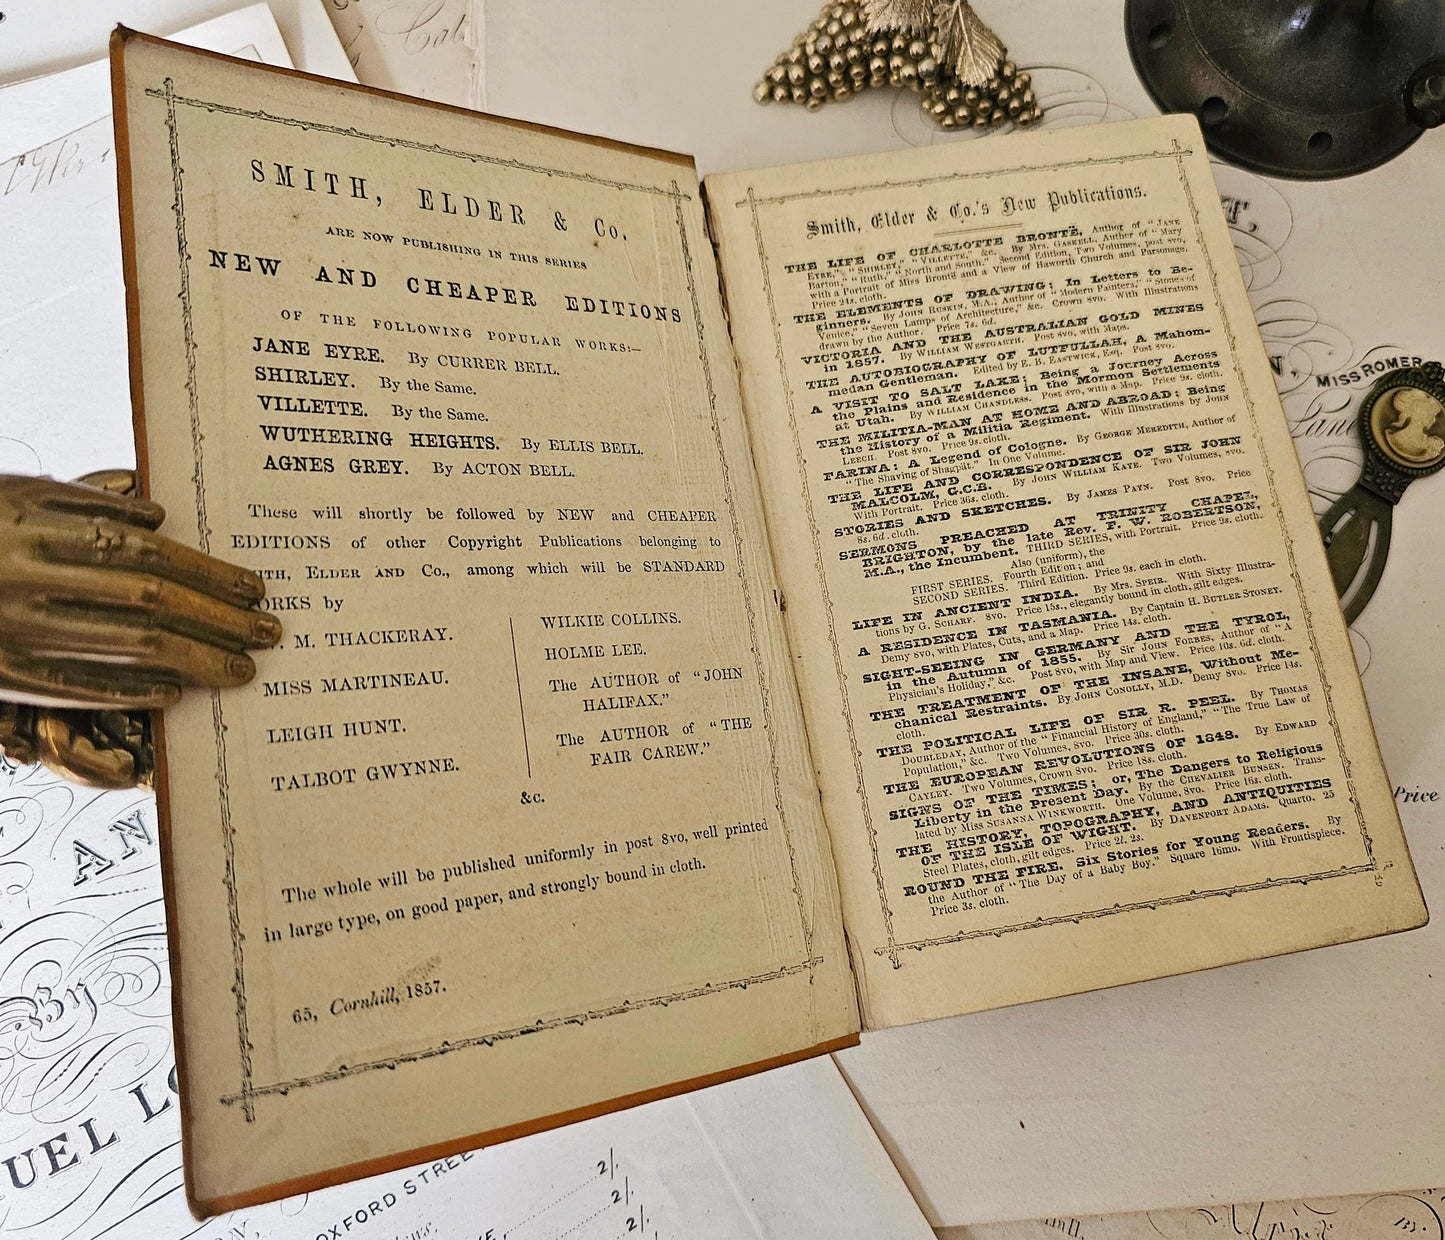 SMITH, ELDER & Co.
ARE NOW PUBLISHING IN THIS SERIES
NEW AND CHEAPER EDITIONS
OF THE FOLLOWING POPULAR WORKS:—
JANE EYRE. By CURRER BELL.
SHIRLEY. By the Same.
VILLETTE. By the Same.
WUTHERING HEIGHTS. By ELLIS BELL.
AGNES GREY. By ACTON BELL.
These will shortly be followed by NEW and CHEAPER
EDITIONS of other Copyright Publications belonging to
ITH, ELDER AND Co., among which will be STANDARD
ORKS by
. M. THACKERAY.
MISS MARTINEAU.
LEIGH HUNT.
TALBOT GWYNNE.
WILKIE COLLINS.
HOLME LEE.
The AUTHOR of "JOHN
HALIFAX."
The AUTHOR of "THE
FAIR CAREW."
&c.
The whole will be published uniformly in post 8vo, well printed
in large type, on good paper, and strongly bound in cloth.
65, Cornhill, 1857.
Smith, Elder & Co.'s New Publications.
THE LIFE OF CHARLOTTE BRONTË, Author of "JANE
EYRE," "SHIRLEY," "VILLETTE," &c. By Mrs. GASKELL, Author of "Mary
Barton," "Ruth," "North and South." Second Edition, Two Volumes, post 8vo,
with a Portrait of Miss Brontë and a View of Haworth Church and Parsonage.
Price 24s. cloth.
THE ELEMENTS OF DRAWING; In Letters to Be-
ginners. By JOHN RUSKIN, M.A., Author of "Modern Painters," "Stones of
Venice," "Seven Lamps of Architecture," &c. Crown 8vo. With Illustrations
drawn by the Author. Price 7s. 6d.
VICTORIA AND THE AUSTRALIAN GOLD MINES
in 1857. By WILLIAM WESTGARTH. Post 8vo, with Maps.
THE AUTOBIOGRAPHY OF LUTFULLAH, A Mahom-
medan Gentleman. Edited by E. B. EASTWICK, Esq. Post 8vo.
A VISIT TO SALT LAKE; Being a Journey Across
the Plains and Residence in the Mormon Settlements
at Utah. By WILLIAM CHANDLESS. Post 8vo, with a Map. Price 9s. cloth.
THE MILITIA-MAN AT HOME AND ABROAD; Being
the History of a Militia Regiment. With Illustrations by JOHN
LEECH. Post 8vo. Price 9s. cloth.
FARINA: A Legend of Cologne. By GEORGE MEREDITH, Author of
"The Shaving of Shagpat." In One Volume.
THE LIFE AND CORRESPONDENCE OF SIR JOHN
MALCOLM, G.C.B. By JOHN WILLIAM KAYE. Two Volumes, 8vo.
With Portrait. Price 36s. cloth.
STORIES AND SKETCHES. By JAMES PAYN. Post 8vo. Price
8s. 6d. cloth.
SERMONS PREACHED AT TRINITY CHAPEL,
BRIGHTON, by the late Rev. F. W. ROBERTSON,
M.A., the Incumbent. THIRD SERIES, with Portrait. Price 9s. cloth.
Also (uniform), the
FIRST SERIES. Fourth Edition; and
SECOND SERIES. Third Edition. Price 9s. each in cloth.
LIFE IN ANCIENT INDIA. By Mrs. SPEIR. With Sixty Illustra-
tions by G. SCHARF. 8vo. Price 15s., elegantly bound in cloth, gilt edges.
A RESIDENCE IN TASMANIA. By Captain H. BUTLER STONEY.
Demy 8vo, with Plates, Cuts, and a Map. Price 14s. cloth.
SIGHT-SEEING IN GERMANY AND THE TYROL,
in the Autumn of 1855. By Sir JOHN FORBES, Author of "A
Physician's Holiday," &c. Post 8vo, with Map and View. Price 10s. 6d. cloth.
THE TREATMENT OF THE INSANE, Without Me-
chanical Restraints. By JOHN CONOLLY, M.D. Demy 8vo. Price 14s.
cloth.
THE POLITICAL LIFE OF SIR R. PEEL. By THOMAS
DOUBLEDAY, Author of the "Financial History of England," "The True Law of
Population," &c. Two Volumes, 8vo. Price 30s. cloth.
THE EUROPEAN REVOLUTIONS OF 1848. By EDWARD
CAYLEY. Two Volumes, Crown 8vo. Price 18s. cloth.
SIGNS OF THE TIMES; or, The Dangers to Religious
Liberty in the Present Day. By the CHEVALIER BUNSEN. Trans-
lated by Miss SUSANNA WINKWORTH. One Volume, 8vo. Price 16s. cloth.
THE HISTORY, TOPOGRAPHY, AND ANTIQUITIES
OF THE ISLE OF WIGHT. By DAVENPORT ADAMS. Quarto. 25
Steel Plates, cloth, gilt edges. Price 2l. 2s.
ROUND THE FIRE. Six Stories for Young Readers. By
the Author of "The Day of a Baby Boy." Square 16mo. With Frontispiece.
Price 3s. cloth.
MISS ROMER
Jane
Price
AN
By
UEL LO
OXFORD STREE
2/.
2/.
2/.
Br.